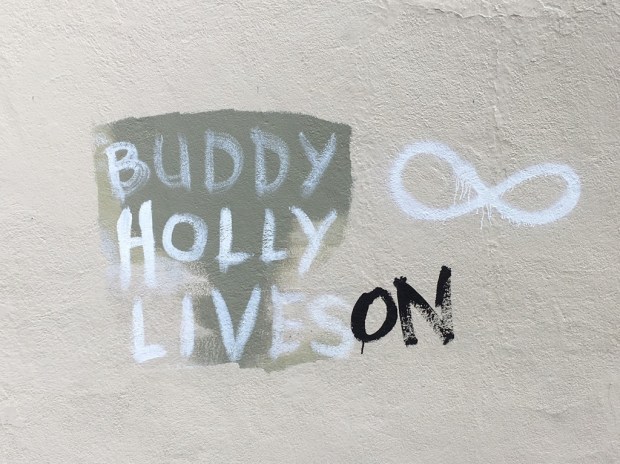 BUDDY
HOLLY
LIVES ON